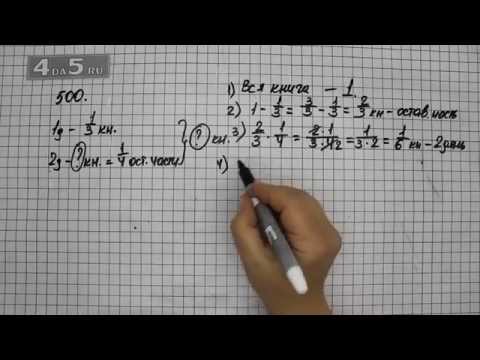 4 DA 5 RU
500.
1д - 1/3 кн.
2д - ? кн. = 1/4 ост. части } ? кн.
1) Вся книга - 1.
2) 1 - 1/3 = 3/3 - 1/3 = 2/3 кн - остав.
3) 2/3 · 1/4 = 2·1/3·4 2 = 1/3·2 = 1/6 кн - 2 день
4)